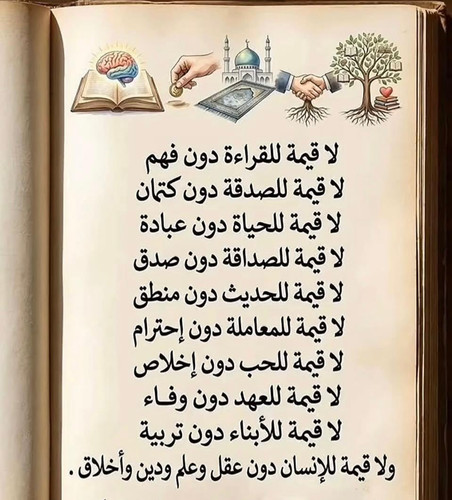 لا قيمة للقراءة دون فهم
لا قيمة للصدقة دون كتمان
لا قيمة للحياة دون عبادة
لا قيمة للصداقة دون صدق
لا قيمة للحديث دون منطق
لا قيمة للمعاملة دون إحترام
لا قيمة للحب دون إخلاص
لا قيمة للعهد دون وفـاء
لا قيمة للأبناء دون تربية
ولا قيمة للإنسان دون عقل وعلم ودين وأخلاق .